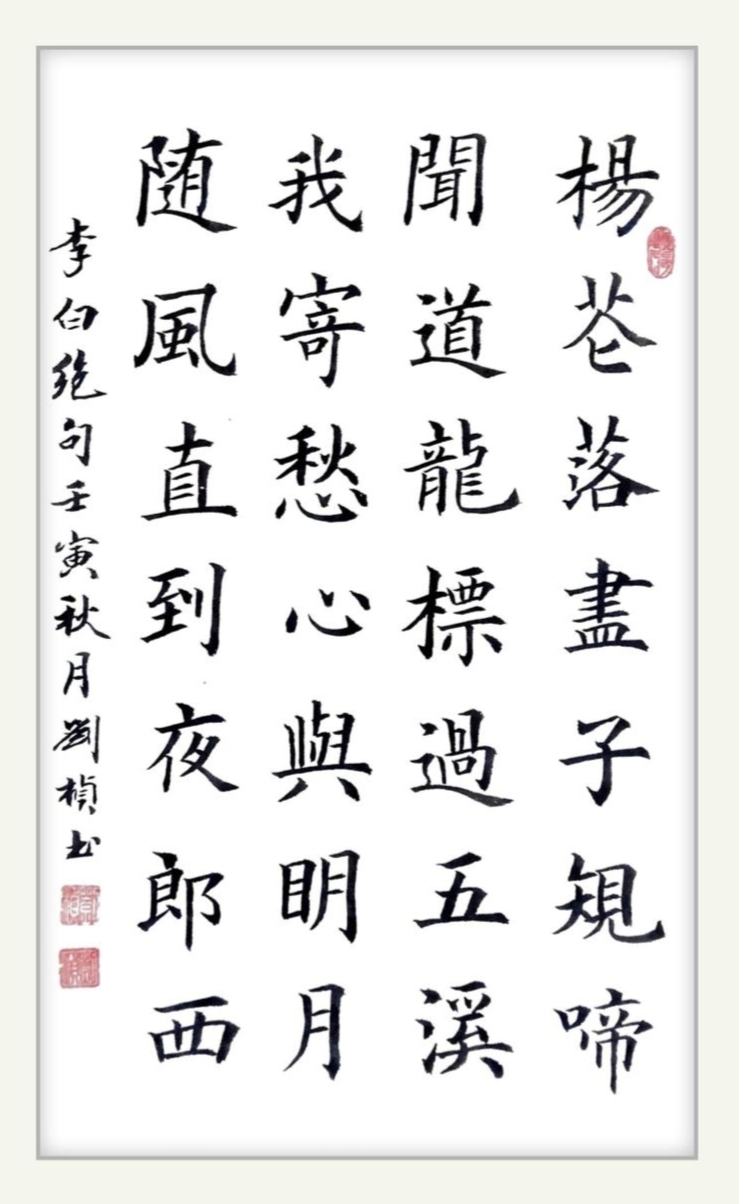 楊花落盡子規啼
聞道龍標過五溪
我寄愁心與明月
随風直到夜郎西
李白絶句壬寅秋月劉楨书